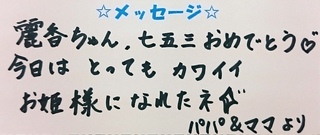 ☆メッセージ☆
麗香ちゃん、七五三おめでとう♡
今日は とっても カワイイ
お姫様に なれたネ☆
パパ&ママより